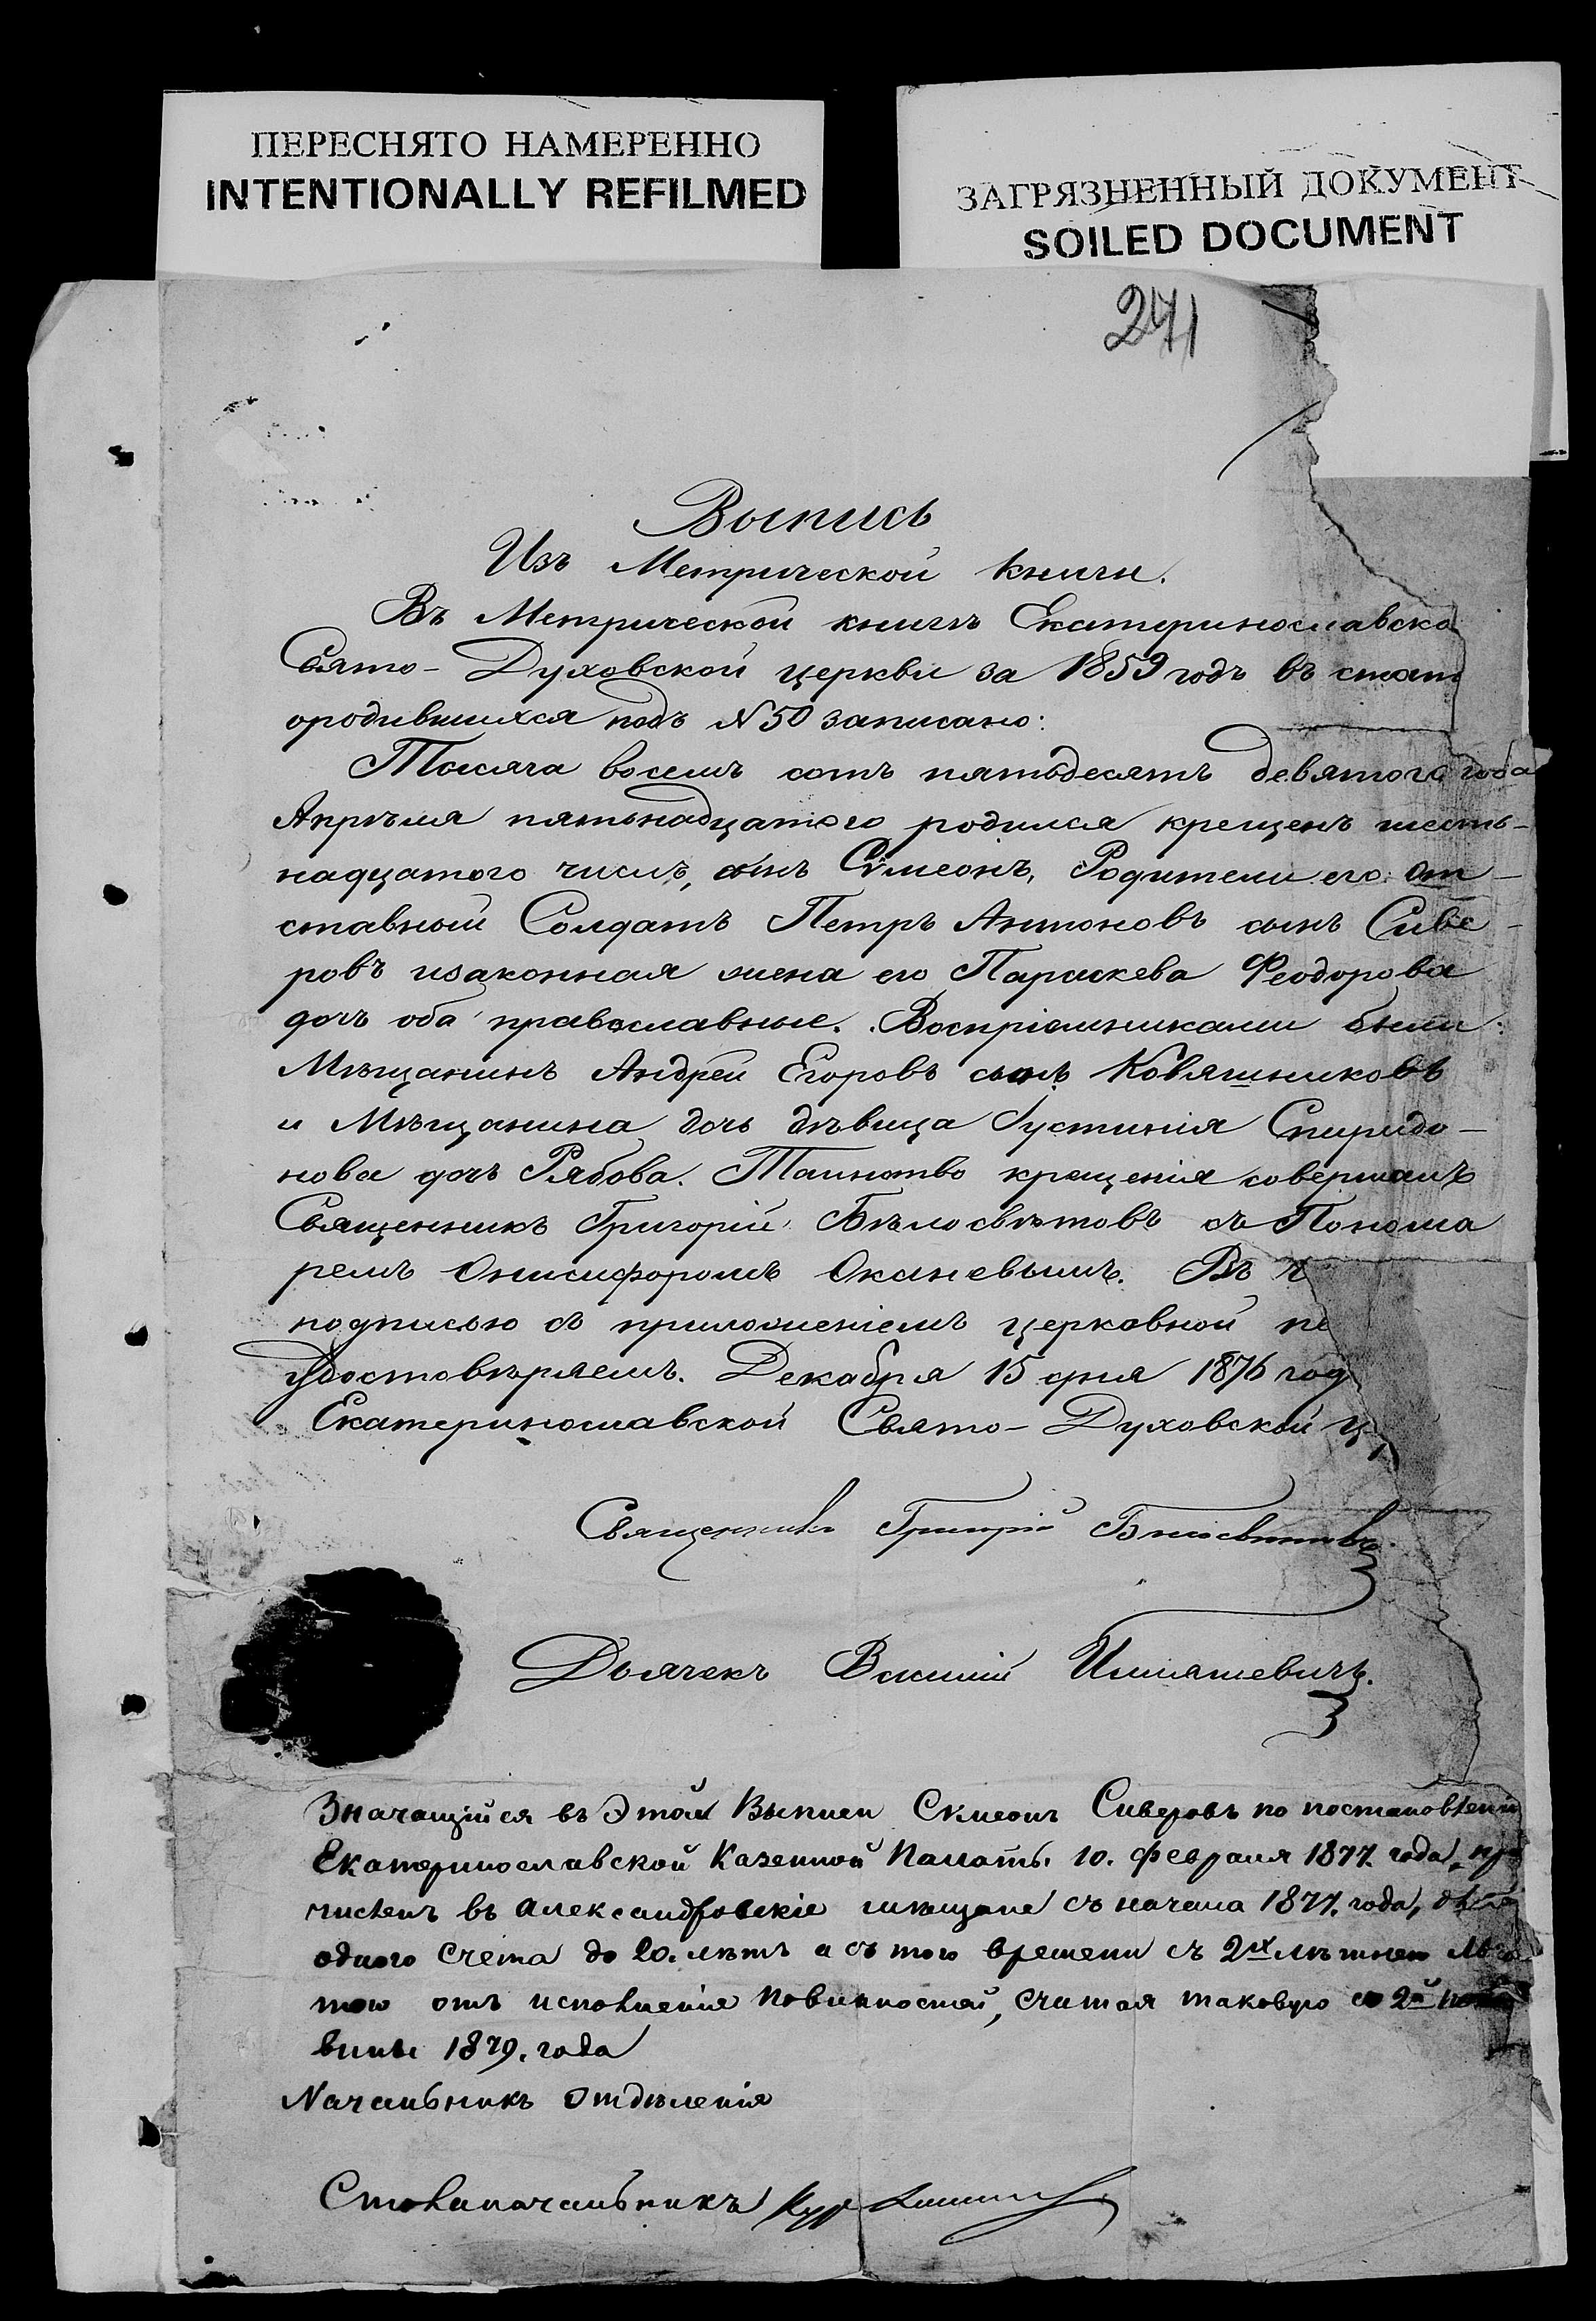 ПЕРЕСНЯТО НАМЕРЕННО
INTENTIONALLY REFILMED
ЗАГРЯЗНЕННЫЙ ДОКУМЕНТ
SOILED DOCUMENT
241
Выпись
Изъ Метрической книги.
Въ Метрической книгѣ Екатеринославско
Свято-Духовской церкви за 1859 годъ въ стат
ородившихся подъ №50 записано:
Тысяча восемъ сотъ пятьдесятъ девятого года
Апрѣля пятьнадцатого родился крещенъ шесть-
надцатого числъ, сынъ Сѵмеонъ, Родители его: От-
ставный Солдатъ Петръ Антоновъ сынъ Сиве-
ровъ изаконная жена его Параскева Феодорова
дочь оба православные. Воспріемниками были:
Мѣщанинъ Андрей Егоровъ сынъ Ковяшниковъ
и Мѣщанина дочь дѣвица Іустинія Спиридо-
нова дочь Рябова. Таинство крещенія совершалъ
Священникъ Григорій Бѣлосвѣтовъ съ Понома
ремъ Онисифоромъ Оканевымъ. Въ ч
подписью съ приложеніемъ церковной пе
Удостовѣряемъ. Декабря 15 дня 1876 год
Екатеринославской Свято-Духовской ц
Священникъ Григорій Бѣлосвѣтовъ.
Дьячекъ Василій
Значащійся въ этой Выписи Симеонъ Сиверовъ по постановленію
Екатеринославской Казенной Палаты 10. февраля 1877. года, при
численъ въ Александровскіе мѣщане съ начала 1877. года, для
одного счета до 20. лѣтъ а съ того времени съ 2хъ лѣтнею льго
тою отъ исполненія повинностей, считая таковую со 2й поло
вины 1879. года
Начальникъ Отдѣленія
Столоначальникъ